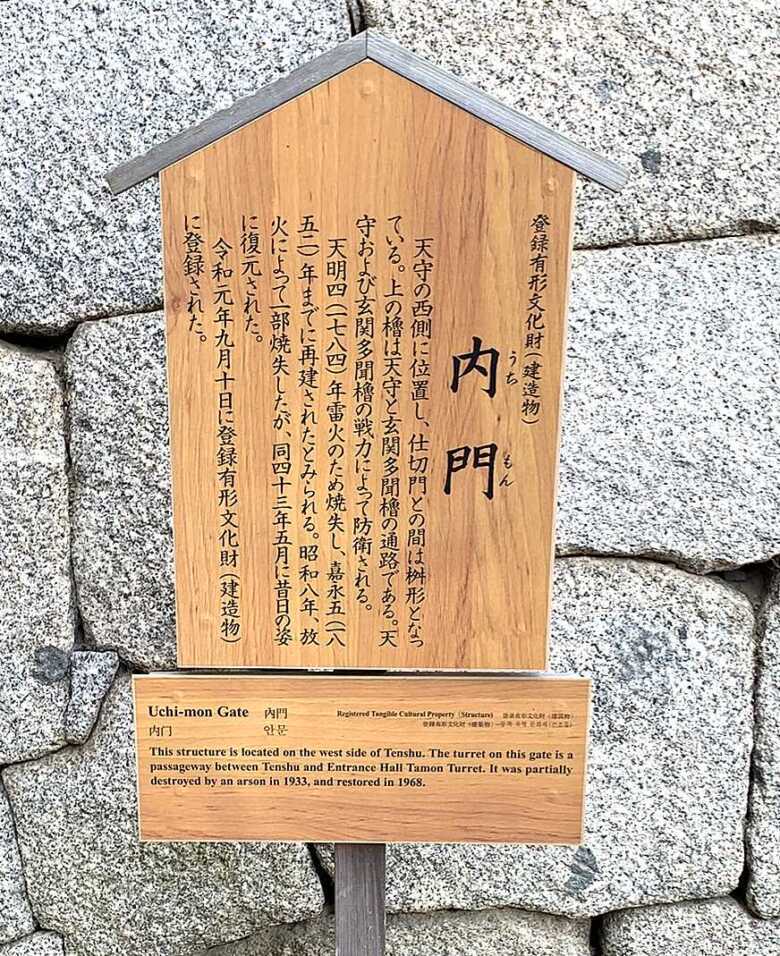 登録有形文化財(建造物)
うち
もん
内門
天守の西側に位置し、仕切門との間は桝形となっ
ている。上の櫓は天守と玄関多聞櫓の通路である。天
守および玄関多聞櫓の戦力によって防衛される。
天明四(一七八四)年雷火のため焼失し、嘉永五(一八
五二)年までに再建されたとみられる。昭和八年、放
火によって一部焼失したが、同四十三年五月に昔日の姿
に復元された。
令和元年九月十日に登録有形文化財(建造物)
に登録された。
Uchi-mon Gate 內門
内门 안문
Registered Tangible Cultural Property (Structure)
This structure is located on the west side of Tenshu. The turret on this gate is a
passageway between Tenshu and Entrance Hall Tamon Turret. It was partially
destroyed by an arson in 1933, and restored in 1968.